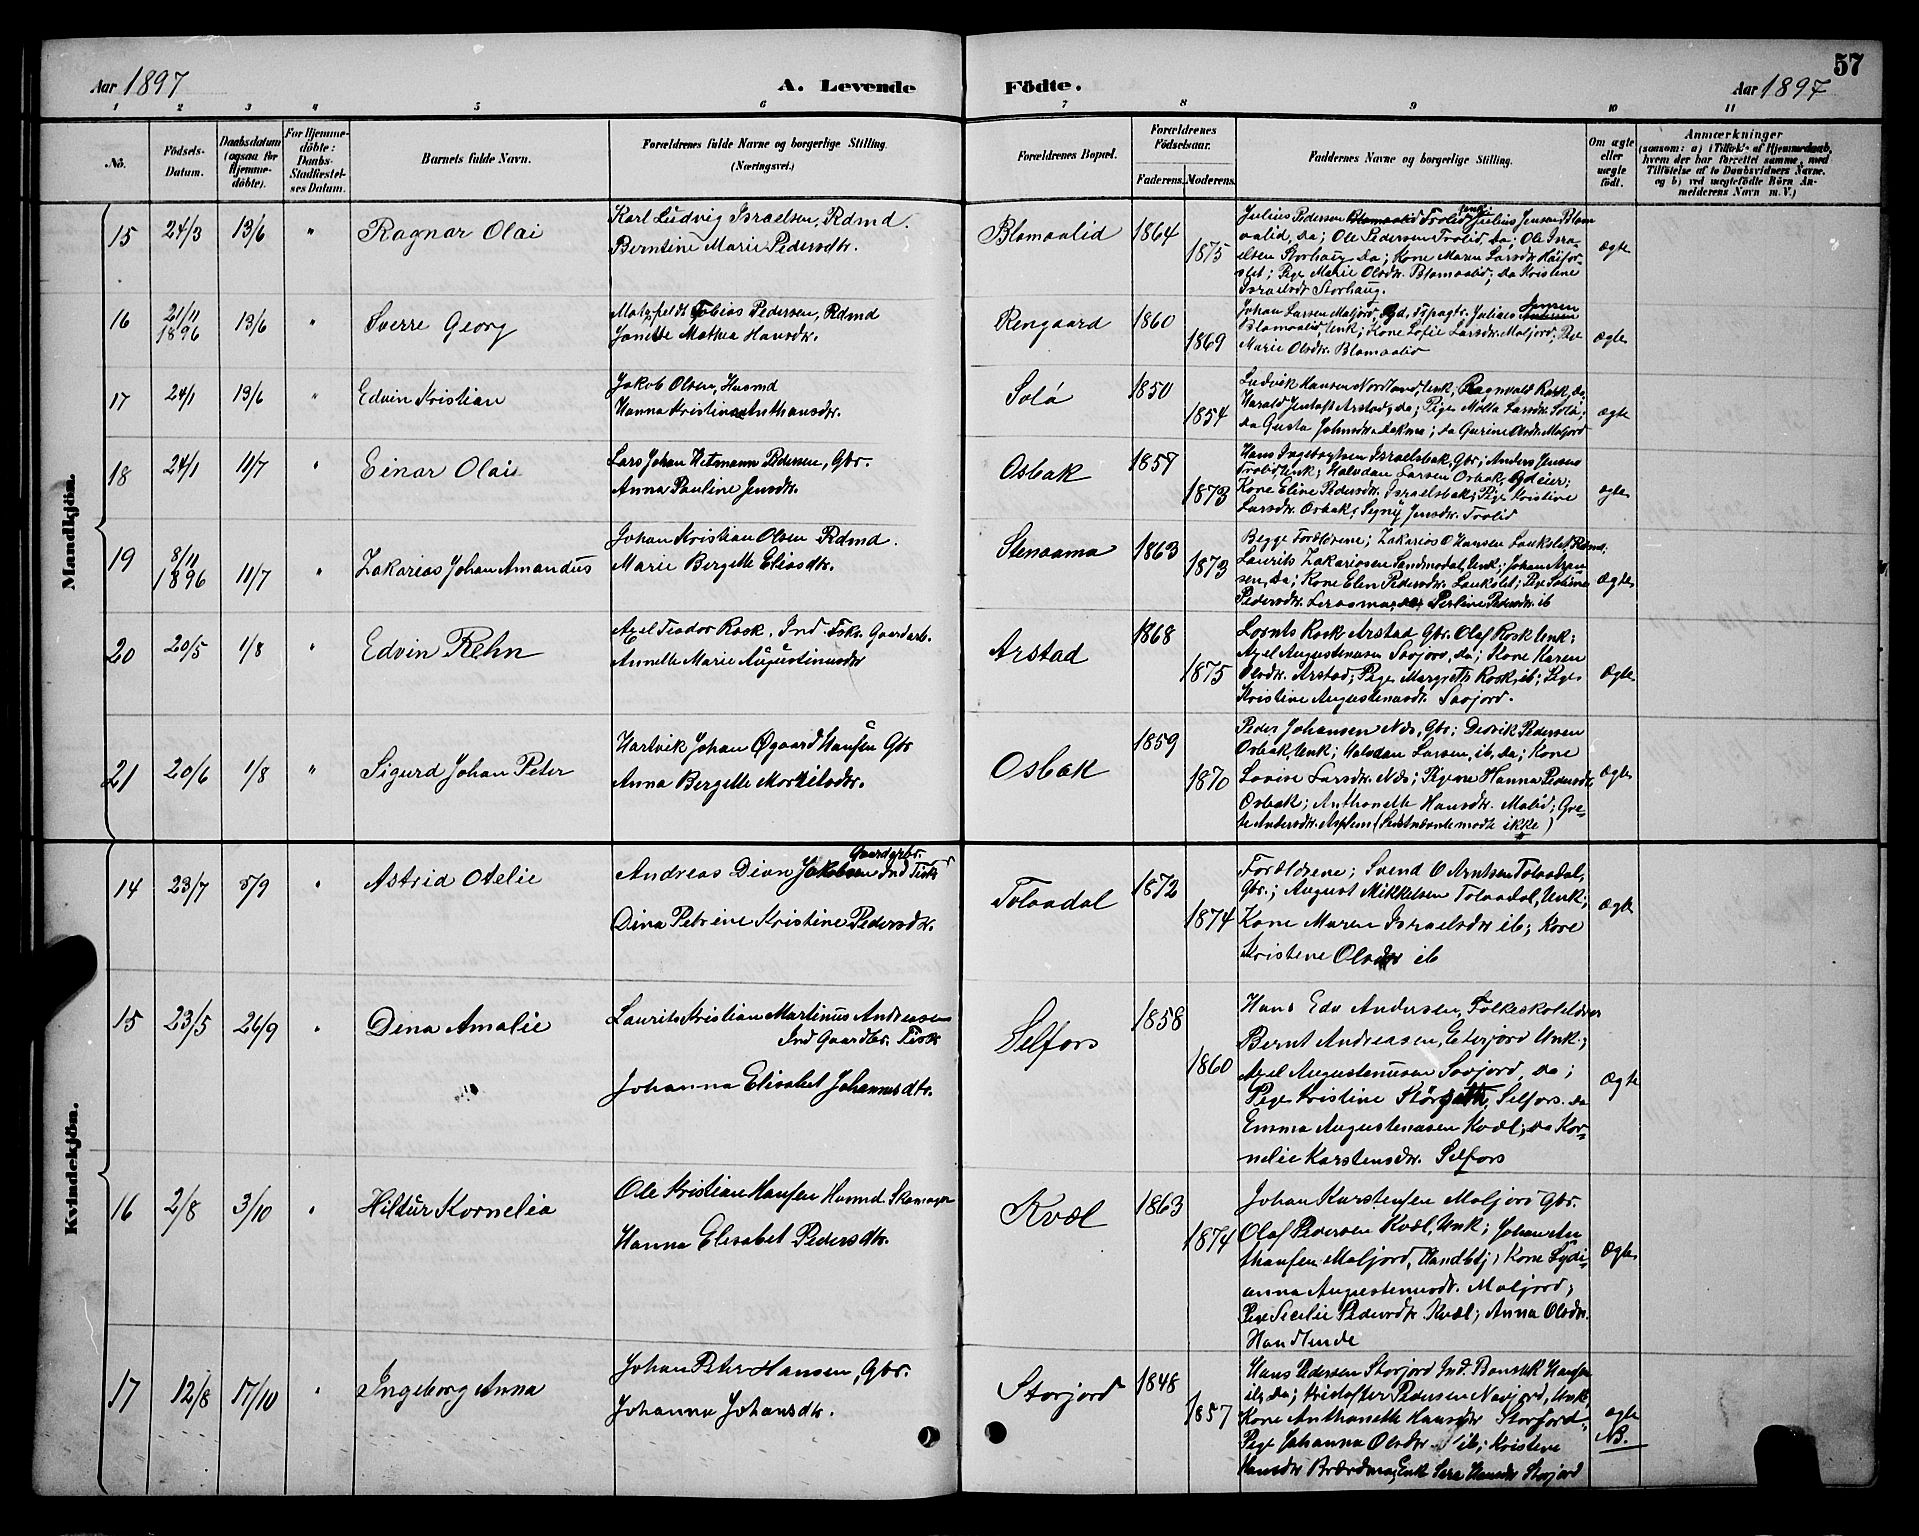 57
Aar 1897
A. Levende
Födte.
Aar 1897
1 2 3 4 5 6 7 8 9 10 11
No.
Födsels-
Datum.
Daabsdatum
(ogsaa for
Hjemme-
döbte).
For Hjemme-
döbte:
Daabs-
Stadfæstel-
ses Datum.
Barnets fulde Navn.
Forældrenes fulde Navne og borgerlige Stilling.
(Næringsvei.)
Forældrenes Bopæl.
Forældrenes
Födselsaar.
Faderens. Moderens.
Faddernes Navne og borgerlige Stilling.
Om ægte
eller
uægte
födt.
Anmærkninger
(saasom: a) i Tilfælde af Hjemmedaab,
hvem der har forrettet samme, med
Tilföielse af to Daabsvidners Navne,
og b) ved uægtefödte Börn An-
melderens Navn m. V.)
Mandkjön.
15 24/3 13/6 " Ragnar Olai
Karl Ludvig Israelsen, Rdmd.
Berntine Marie Pedersdtr.
Blomaalid 1864
1875
Julius Pedersen Trolid, Julius Jensen Blom
aalid, da; Ole Pedersen Trolid, da; Ole Isra-
elsen Storhaug da; Kone Maren Larsdtr.
Pige Marie Olsdtr. Blomaalid, da Kristine
Israelsdtr Storhaug.
ægte
16 21/11
1896 13/6 " Sverre Georg
Tobias Pedersen, Rdmd
Mathea Hansdtr.
Rengaard 1860
1869
Johan Larsen Maljord, Julius Jensen
Blomaalid Unk; Kone Sofie Larsdtr. Maljord; Pige
Marie Olsdtr. Blomaalid
ægte
17 24/1 13/6 " Edvin Kristian
Jakob Olsen, Husmd
Hanna Kristine Anthonsdtr.
Solö 1850
1854
Ludvik Hansen Nordland, Unk, Ragnvald Rosk, da,
Harald Arstad, da; Pige Larsdtr. Solö;
da Gusta Johnsdtr.; da Gurine Olsdtr. Maljord
ægte
18 24/1 11/7 " Einar Olai
Lars Johan Hetmann Pedersen, Gbr.
Anna Pauline Jensdtr.
Osbak 1857
1873
Hans Israelsbak, Gbr; Anders Jensen
Trolid Unk; Halvdan Larsen Osbak, Gdeier;
Kone Eline Pedersdtr. Israelsbak; Pige Kristine
Larsdtr. Osbak; Signy Jensdtr. Trolid
ægte
19 8/11
1896 11/7 " Zakarias Johan Amandus
Johan Kristian Olsen Rdmd.
Marie Bergette Eliasdtr.
Stenaama 1863
1873
Begge Forældrene; Zakarias O Hansen Laukslet, Rdmd;
Laurits Zakariasen Sandmodal, Unk; Johan
da; Kone Elen Pedersdtr. Laukslet; Pige
Pedersdtr. Perline Pedersdtr. ib
ægte
20 20/5 1/8 " Edvin Rehn
Axel Teodor Rosk, Ind. Fsk. Gaardarb.
Annette Marie Augustinusdtr
Arstad 1868
1875
Lornts Rosk Arstad Gbr. Olaf Rosk Unk;
Axel Augustenusen Soojord, da; Kone Karen
Olsdtr. Arstad; Pige Margrethe Rosk, ib; Pige
Kristine Augustenusdtr. Soojord.
ægte
21 20/6 1/8 " Sigurd Johan Peter
Hartvik Johan Øgaard Hansen Gbr
Anna Bergette
Osbak 1859
1870
Peder Johansen Næs, Gbr; Didrik Pedersen
Osbak, Unk; Halvdan Larsen, ib, da; Kone
Lovise Larsdtr. Næs; Pigerne Hanna Pedersdtr
Osbak; Anthonette Hansdtr. Molid; Gre-
te Andersdtr. (Sidstnævnte mødte ikke)
ægte
Kvindekjön.
14 23/7 5/9 " Astrid Otelie
Andreas Dion Jakobsen Ind Fisk
Gaardgrbr.
Dina Petrine Kristine Pedersdtr.
Tolaadal 1872
1874
Forældrene; Svend O Arntsen Tolaadal,
Gbr.; August Mikkelsen Tolaadal, Unk;
Kone Maren Israelsdtr ib; Kone
Kristine Olsdtr ib
ægte
15 23/5 26/9 " Dena Amalie
Laurits Kristian Martinus Andreasen
Ind Gaardbr. Fisk
Johanna Elisabet Johannesdtr.
Selfors 1858
1860
Hans Edv Andersen, Folkeskolelærer
Bernt Andreasen, Eterjord Unk;
Axel Augustenusen Soojord, da;
Pige Kristine Selfors. da
Emma Augustenusen Kvæl; da Kor-
nelie Karstensdtr. Selfors
ægte
16 2/8 3/10 " Hildur Kornelia
Ole Kristian Hansen Husmd Skomager
Hanna Elisabet Pedersdtr.
Kvæl 1863
1874
Johan Karstensen Maljord Gbr.
Olaf Pedersen Kvæl, Unk; Johan An-
thonsen Maljord, Handlbtj; Kone Lydi-
anna Augustenusdtr. Maljord;
Pige Secilie Pedersdtr. Kvæl; Anna Olsdtr.
Handlende
ægte
17 12/8 17/10 " Ingeborg Anna
Johan Peter Hansen, Gbr.
Johanna Johansdtr.
Storjord 1848
1857
Hans Pedersen Storjord Ind. Hansen
ib, da; Kristoffer Pedersen Navjord, Unk,
Kone Anthonette Hansdtr Storjord
Pige Johanna Olsdtr ib; Kristine
Hansdtr Enk Sara Hansdtr Storjord
ægte
NB.